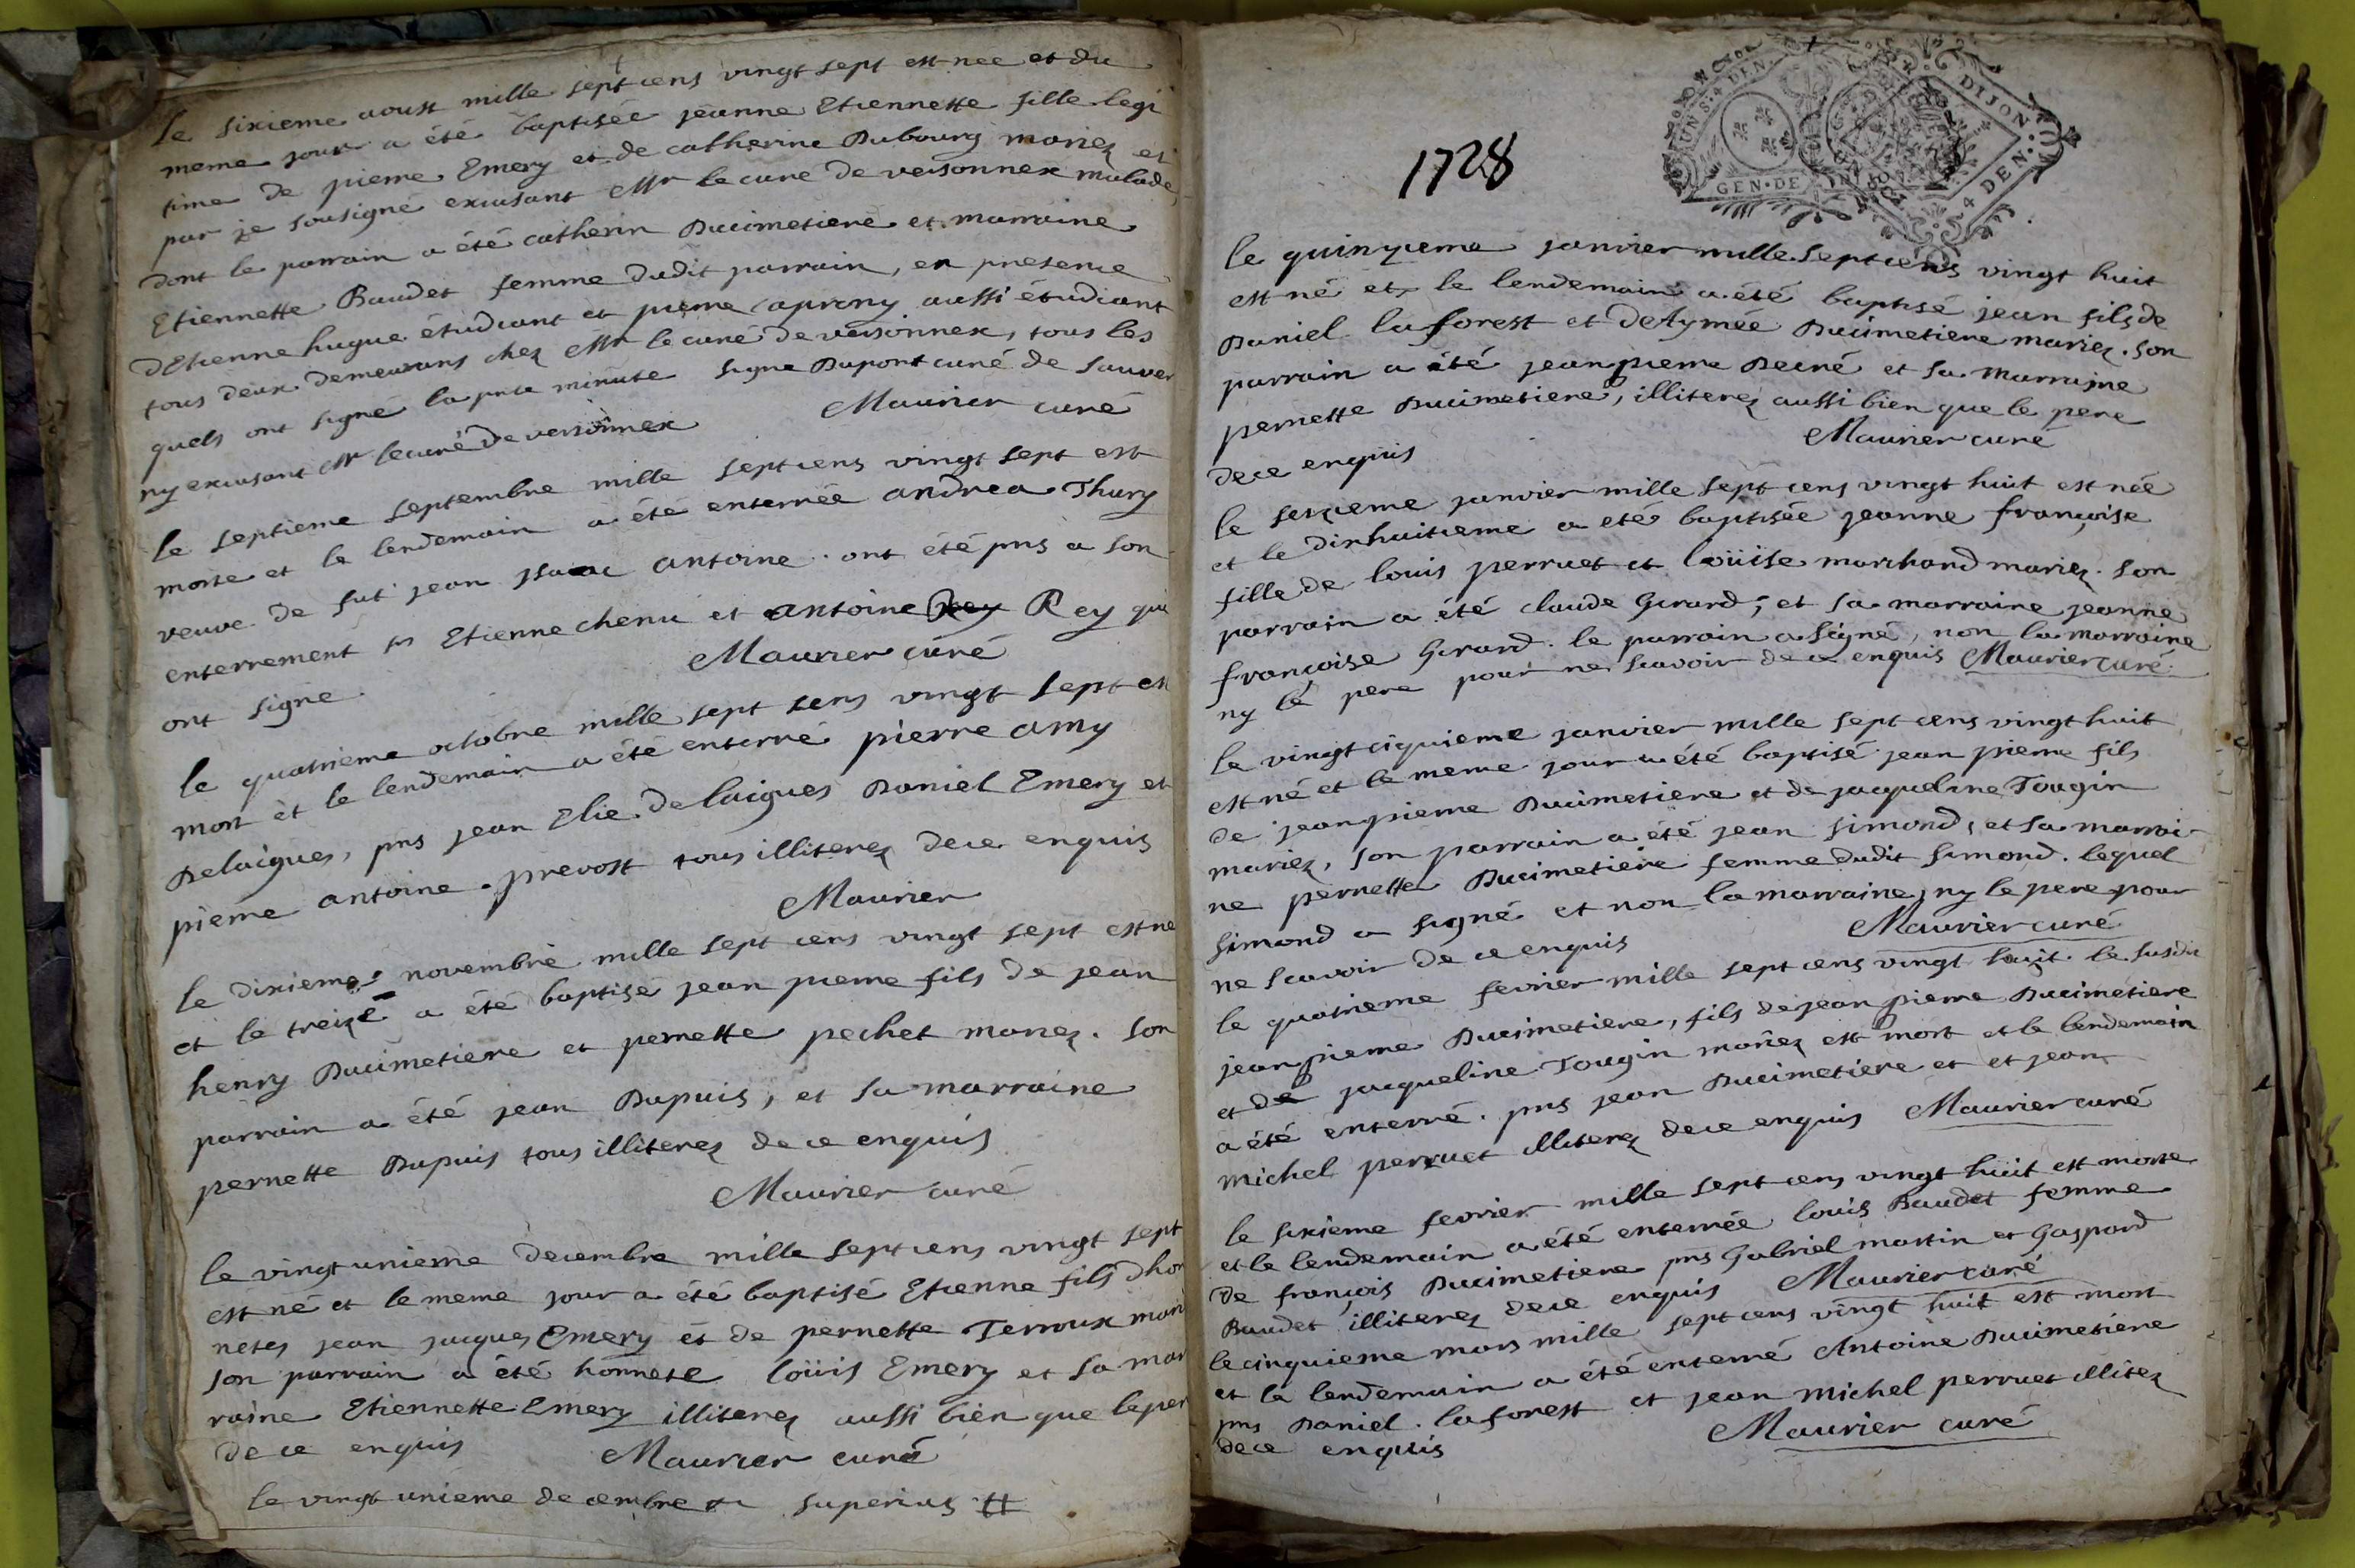 le sixieme aoust mille sept cens vingt sept est nee et du
meme jour a été baptisée jeanne Etiennette fille legi
time de pierre Emery et de catherine Dubourg mariez et
par je sousigné excusant Mr le curé de versonnex malade,
dont le parrain a été catherin Ducimetiere et marraine
Etiennette Baudet femme dudit parrain, en presence
d'Etienne hugue étudiant et pierre caprony aussi étudiant
tous deux demeurans chez Mr le curé de versonnex, tous les
quels ont signé la pnte minute signe Dupont curé de sauver
ny excusant Mr le curé de versonnex Maurier curé
le septieme septembre mille sept cens vingt sept est
morte et le lendemain a été enterrée andrea Thury
veuve de fut jean jsaac antoine. ont été pns a son
enterrement srs Etienne chenu et antoine Rey qui
ont signe. Maurier curé
le quatrieme octobre mille sept cens vingt sept est
mort et le lendemain a été enterré pierre amy
Delaigues, pns jean Elie Delaigues Daniel Emery et
pierre antoine prevost tous illiterez de ce enquis
Maurier
le dixieme novembre mille sept cens vingt sept est ne
et le treize a été baptise jean pierre fils de jean
henry Ducimetiere et pernette pechet mariez. son
parrain a été jean Dupuis, et sa marraine
pernette Dupuis tous illiterez de ce enquis
Maurier curé
le vingt unieme decembre mille sept cens vingt sept
est né et le meme jour a été baptisé Etienne fils d'hon
netes jean jacques Emery et de pernette Terroux mari
son parrain a été honnete loüis Emery et sa mar
raine Etiennette Emery illiterez aussi bien que le per
de ce enquis Maurier curé
le vingt unieme decembre superius #
1728
GEN·DE DIJON
UN S·4 DEN·
DIJON·
4 DEN·
le quinzieme janvier mille sept cens vingt huit
est né et le lendemain a été baptisé jean fils de
Daniel laforest et de Aymée Ducimetiere mariez. son
parrain a été jean pierre Decré et sa marraine
pernette Ducimetiere, illiterez aussi bien que le pere
de ce enquis Maurier curé
le seizieme janvier mille sept cens vingt huit est née
et le dixhuitieme a eté baptisée jeanne françoise
fille de louis perruet et loüise marchand mariez. son
parrain a été claude Girard, et sa marraine jeanne
françoise Girard. le parrain a signé, non la marraine
ny le pere pour ne scavoir de ce enquis Maurier curé.
le vingt ciquieme janvier mille sept cens vingt huit
est né et le meme jour a été baptisé jean pierre fils
de jean pierre Ducimetiere et de jacqueline Tougin
mariez, son parrain a été jean simond, et sa marrai-
ne pernette Ducimetiere femme dudit simond. lequel
simond a signé et non la marraine, ny le pere pour
ne scavoir de ce enquis Maurier curé
le quatrieme fevrier mille sept cens vingt huit. le susdit
jean pierre Ducimetiere, fils de jean pierre Ducimetiere
et de jacqueline Tougin mariez est mort et le lendemain
a été enterré. pns jean Ducimetiere et et jean
michel perruet illiterez de ce enquis Maurier curé
le sixieme fevrier mille sept cens vingt huit est morte
et le lendemain a été enterrée louis Baudet femme
de françois Ducimetiere pns Gabriel martin et Gaspard
Baudet illiterez de ce enquis Maurier curé
le cinquieme mars mille sept cens vingt huit est mort
et le lendemain a été enterré Antoine Ducimetiere
pns Daniel laforest et jean michel perruet illitez
de ce enquis Maurier curé